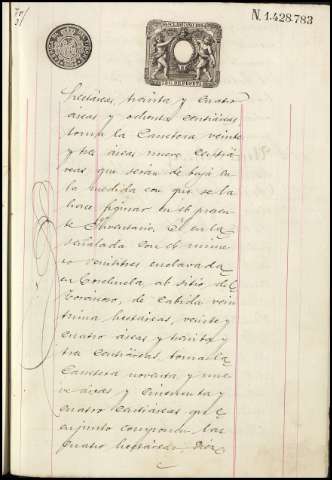 N. 1.428.783
hectáreas, treinta y cuatro
áreas y ochenta centiáreas
toma la Carretera veinte
y tres áreas nueve centiá
reas que serán de baja en
la medida con que se la
hace figurar en el presen
te Inventario. Y en la
señalada con el núme
ro veintitres enclavada
en al sitio de
de cabida vein
hectáreas, veinte y
cuatro áreas y treinta y
tres centiáreas, toma la
Carretera noventa y nue
ve áreas y cincuenta y
cuatro centiáreas que en
conjunto componen las
cuatro hectáreas, diez